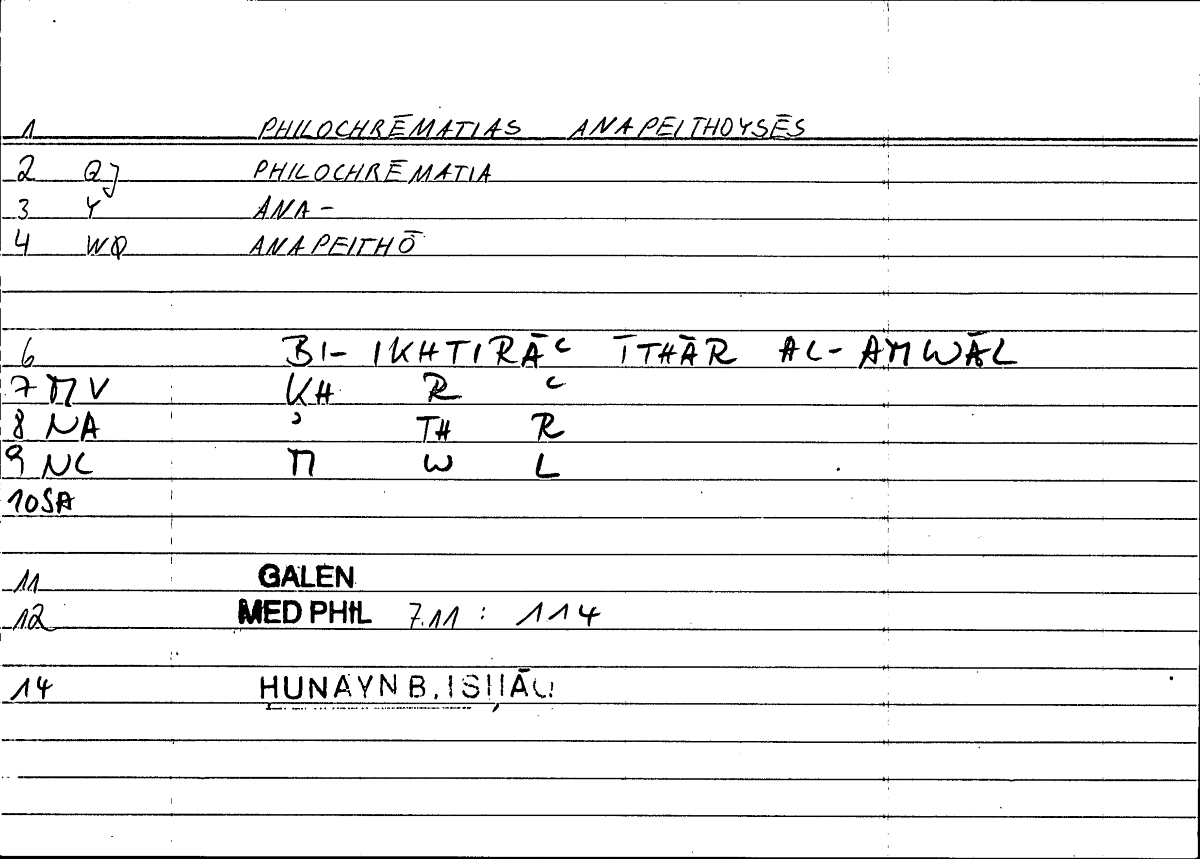 1 PHILOCHRĒMATIAS ANAPEITHOYSĒS
2 QJ PHILOCHRĒMATIA
3 Y ANA-
4 WQ ANAPEITHŌ
6 BI- IKHTIRĀʿ ĪTHĀR AL-AMWĀL
7 MV KH R ʿ
8 NA ʾ TH R
9 NC M W L
10 SA
11 GALEN
12 MED PHIL 7.11 : 114
14 HUNAYN B. ISḤĀQ